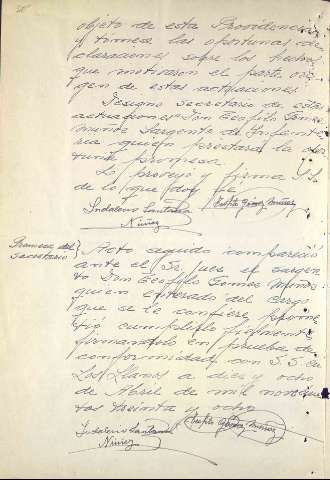 objeto de esta Providencia
y tómese las oportunas de-
claraciones sobre los hechos
que motivaron el parte ori-
gen de estas actuaciones.
Designo Secretario de estas
actuaciones Don Teofilo Gomez
Muñoz Sargento de Infante-
ria quien prestará la opor-
tuna promesa.
Lo proveyó y firma S.S.
de lo que doy fé
Indalecio Santana Teofilo Gómez Muñoz
Núñez
Promesa del
Secretario
Acto seguido compareció
ante el Sr. Juez el sargen-
to Don Teofilo Gomez Muñoz
quien enterado del cargo
que se le confiere prome-
tió cumplirlo fielmente
firmandolo en prueba de
conformidad con S.S. en
Los Llanos a diez y ocho
de Abril de mil novecien-
tos treinta y ocho
Indalecio Santana Teofilo Gómez Muñoz
Núñez